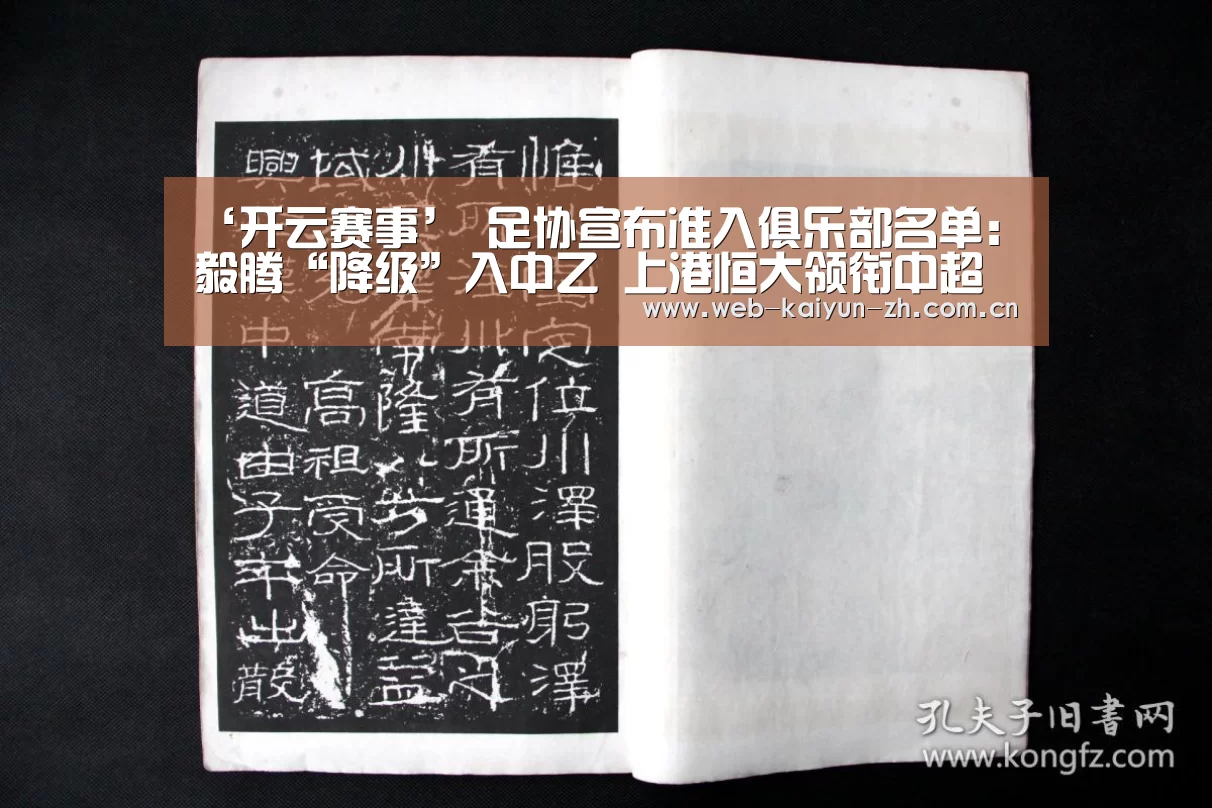 ‘开云赛事’ 足协宣布准入俱乐部名单：
毅腾“降级”入中乙 上港恒大领衔中超
www.web-kaiyun-zh.com.cn
惟定位川澤股躬澤
有所注川有所通余谷之
川澤南隆八方所達益
域充高祖受命
興漢中道由子午出散
孔夫子旧書网
www.kongfz.com